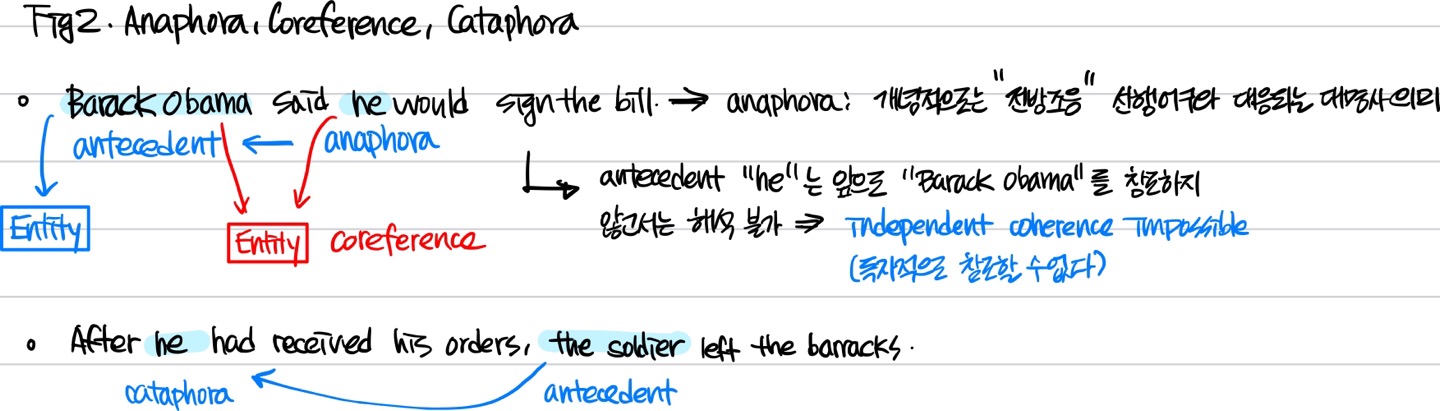 Fig2. Anaphora, Coreference, Cataphora
Barack Obama said he would sign the bill. → anaphora: 개념적으로는 "전방조응" 선행어구와 대응되는 대명사 의미
antecedent ← anaphora
antecedent "he"는 앞으로 "Barack Obama"를 참조하지
Entity
Entity coreference
않고서는 해석 불가 ⇒ Independent coherence Impossible
(독자적으로 참조할 수 없다)
After he had received his orders, the soldier left the barracks.
cataphora antecedent